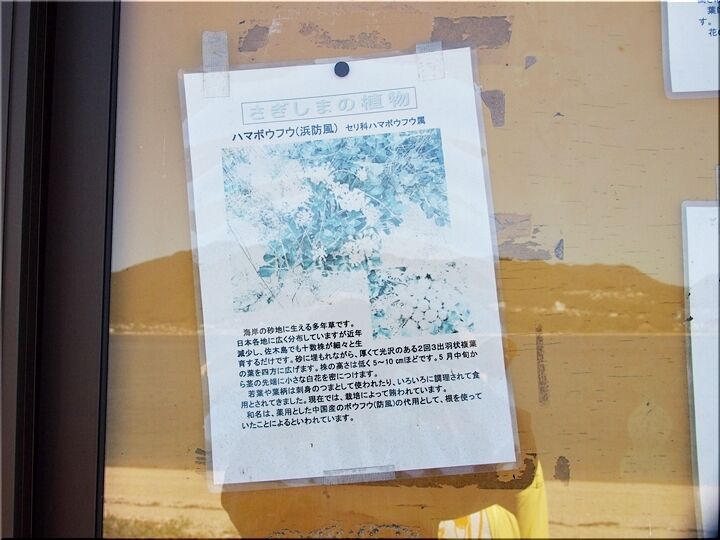 さぎしまの植物
ハマボウフウ(浜防風) セリ科ハマボウフウ属
海岸の砂地に生える多年草です。
日本各地に広く分布していますが近年
減少し、佐木島でも十数株が細々と生
育するだけです。砂に埋もれながら、厚くて光沢のある2回3出羽状複葉
の葉を四方に広げます。株の高さは低く5～10cmほどです。5月中旬か
ら茎の先端に小さな白花を密につけます。
若葉や葉柄は刺身のつまとして使われたり、いろいろに調理されて食
用とされてきました。現在では、栽培によって賄われています。
和名は、薬用とした中国産のボウフウ(防風)の代用として、根を使って
いたことによるといわれています。
す。
花の